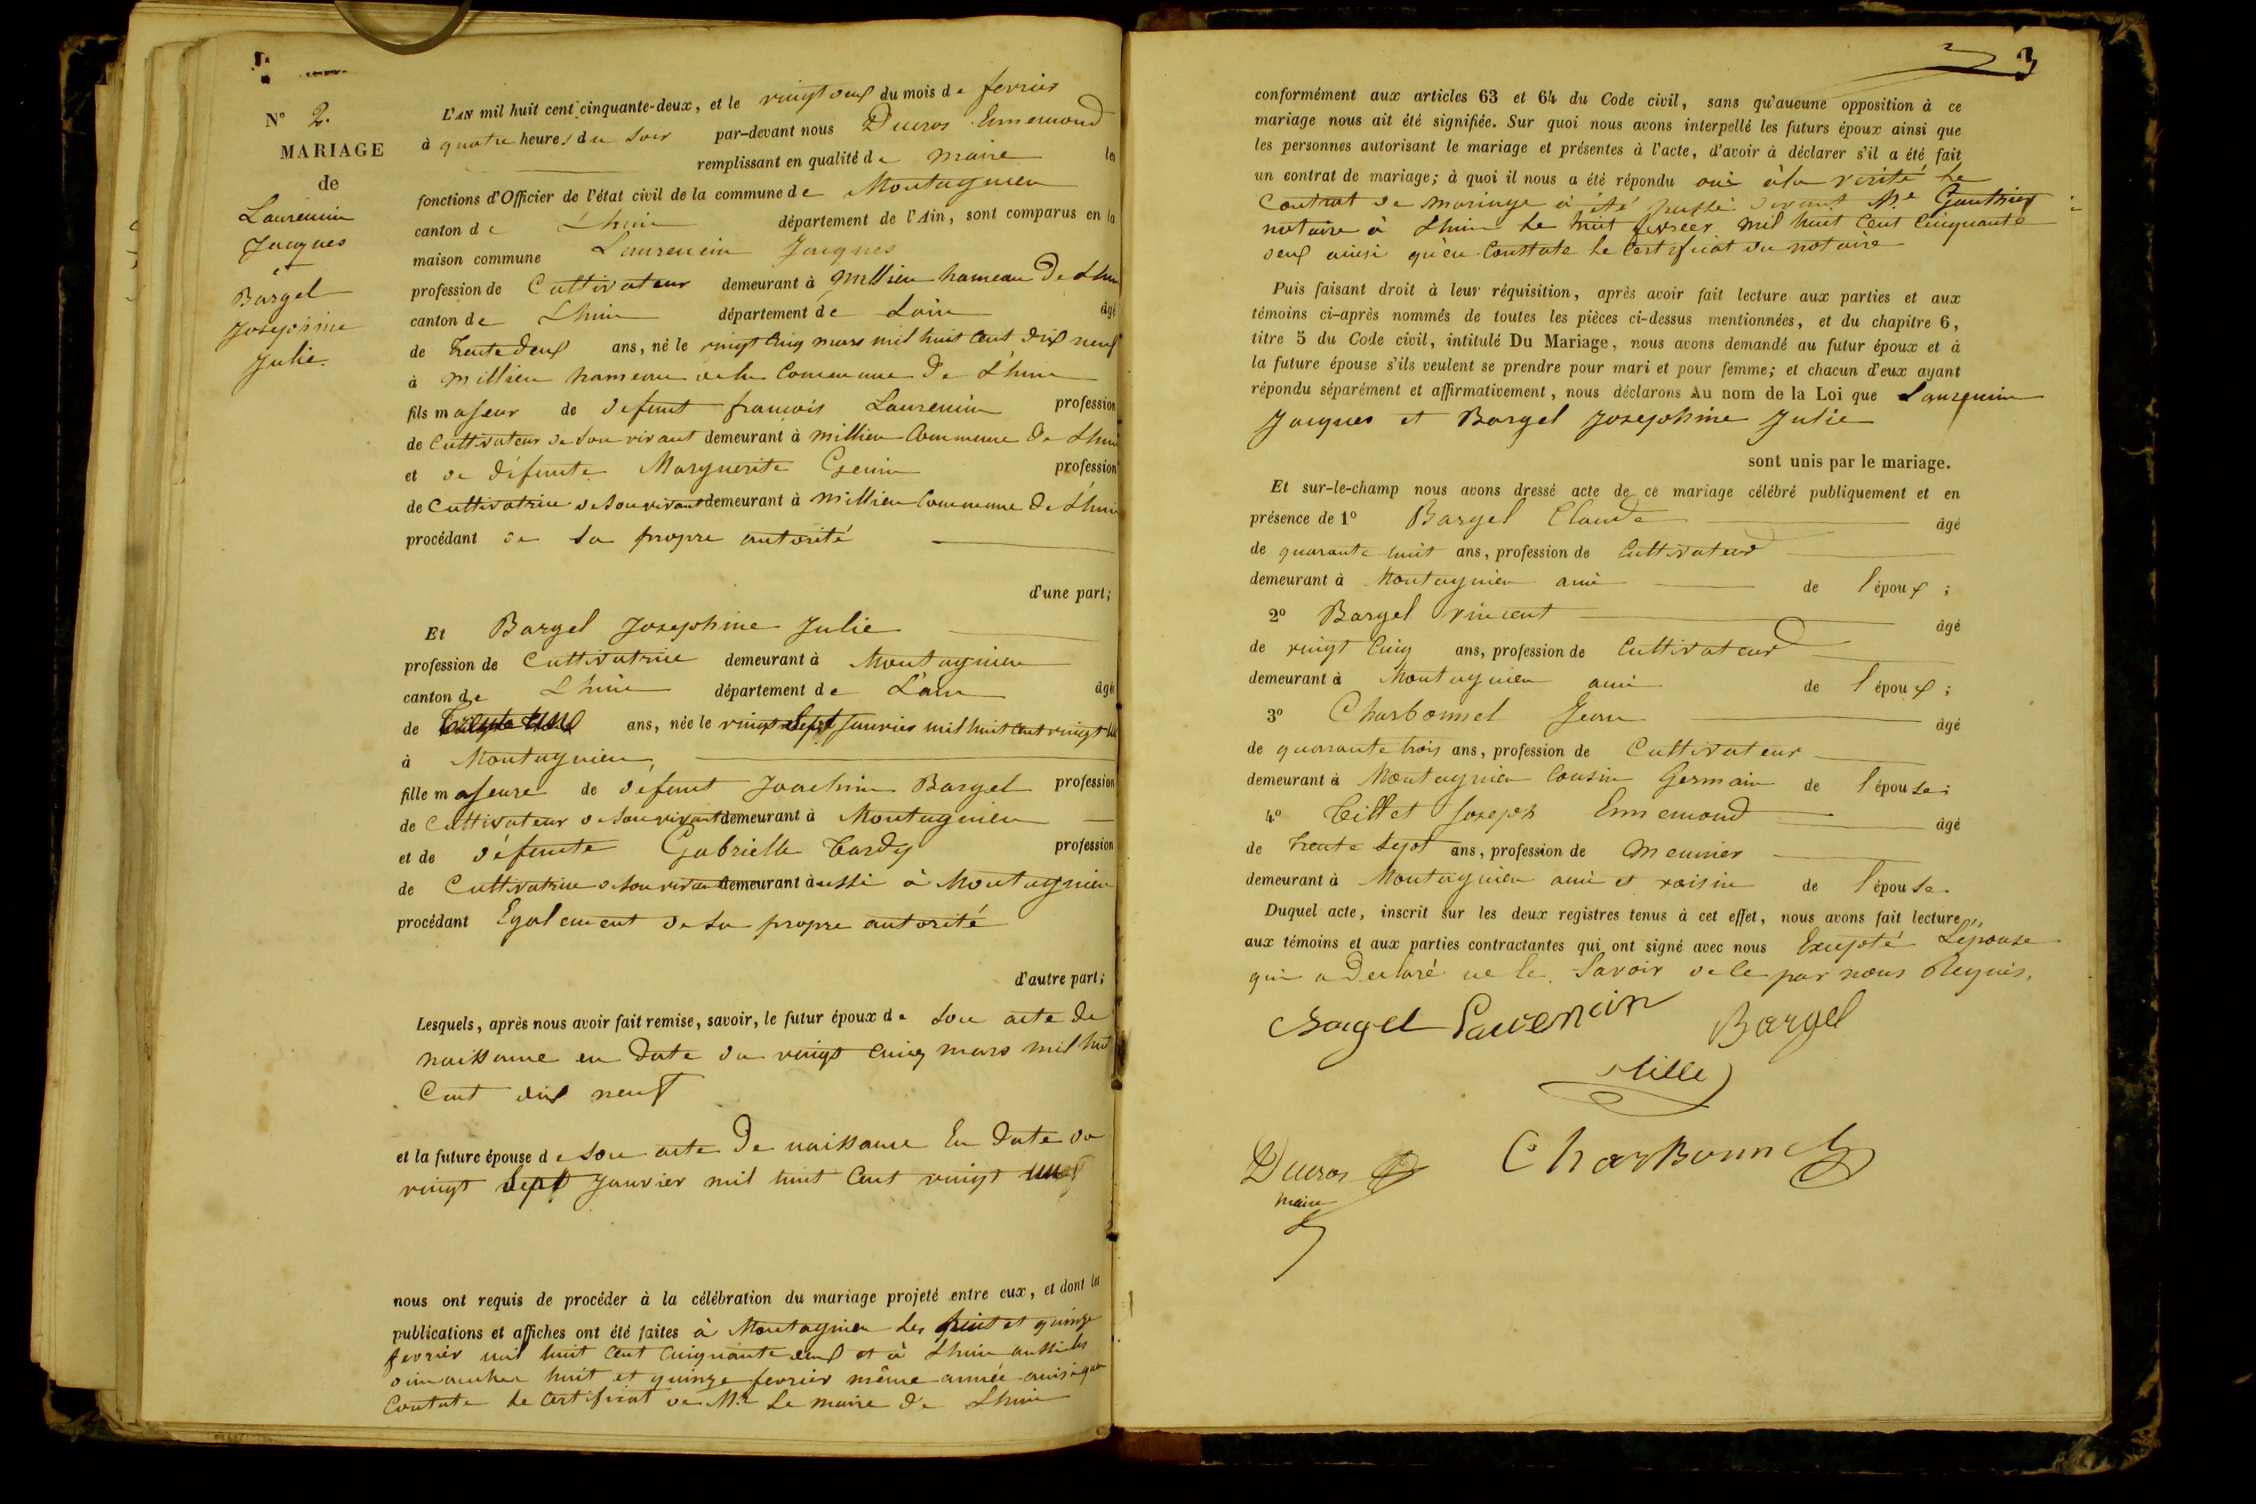 N° 2.
MARIAGE
de
Laurencin
Jacques
et
Bargel
Josephine
Julie.
L'AN mil huit cent cinquante-deux, et le vingt deux du mois de fevrier
à quatre heures du soir par-devant nous Ducros Ennemond
remplissant en qualité de maire les
fonctions d'Officier de l'état civil de la commune de Montagnieu
canton de Lhuis département de l'Ain, sont comparus en la
maison commune Laurencin Jacques
profession de Cultivateur demeurant à Millieu hameau De Lhuis
canton de Lhuis département de Lain âgé
de trente deux ans, né le vingt cinq mars mil huit cent dix neuf
à Millieu hameau de la Commune De Lhuis
fils majeur de défunt françois Laurencin profession
de Cultivateur de son vivant demeurant à Millieu Commune De Lhuis
et de défunte Marguerite Genin profession
de Cultivatrice de son vivant demeurant à Millieu Commune De Lhuis
procédant de sa propre autorité
d'une part;
Et Bargel Josephine Julie
profession de Cultivatrice demeurant à Montagnieu
canton de Lhuis département de L'ain âgée
de trente une ans, née le vingt Sept janvier mil huit cent vingt un
à Montagnieu
fille majeure de défunt Joachim Bargel profession
de Cultivateur de son vivant demeurant à Montagnieu
et de défunte Gabrielle Tardy profession
de Cultivatrice de son vivant demeurant aussi à Montagnieu
procédant Egalement de sa propre autorité
d'autre part;
Lesquels, après nous avoir fait remise, savoir, le futur époux de son acte de
naissance en date du vingt cinq mars mil huit
Cent dix neuf
et la future épouse de son acte De naissance En date du
vingt Sept Janvier mil huit Cent vingt un
nous ont requis de procéder à la célébration du mariage projeté entre eux, et dont les
publications et affiches ont été faites à Montagnieu les huit et quinze
fevrier mil huit cent cinquante deux et à Lhuis aussi les
dimanches huit et quinze fevrier même année ainsi que
Constate le certificat de Mr le maire de Lhuis
3
conformément aux articles 63 et 64 du Code civil, sans qu'aucune opposition à ce
mariage nous ait été signifiée. Sur quoi nous avons interpellé les futurs époux ainsi que
les personnes autorisant le mariage et présentes à l'acte, d'avoir à déclarer s'il a été fait
un contrat de mariage; à quoi il nous a été répondu oui à la vérité le
Contrat de mariage a été passé devant Me Gauthier
notaire à Lhuis le huit fevrier mil huit Cent Cinquante
deux ainsi qu'en Constate le Certificat du notaire
Puis faisant droit à leur réquisition, après avoir fait lecture aux parties et aux
témoins ci-après nommés de toutes les pièces ci-dessus mentionnées, et du chapitre 6,
titre 5 du Code civil, intitulé Du Mariage, nous avons demandé au futur époux et à
la future épouse s'ils veulent se prendre pour mari et pour femme; et chacun d'eux ayant
répondu séparément et affirmativement, nous déclarons Au nom de la Loi que Laurencin
Jacques et Bargel Josephine Julie
sont unis par le mariage.
Et sur-le-champ nous avons dressé acte de ce mariage célébré publiquement et en
présence de 1° Bargel Claude âgé
de quarante huit ans, profession de Cultivateur
demeurant à Montagnieu ami de l'époux;
2° Bargel Vincent âgé
de vingt Cinq ans, profession de Cultivateur
demeurant à Montagnieu ami de l'époux;
3° Charbonnel Jean âgé
de quarante trois ans, profession de Cultivateur
demeurant à Montagnieu Cousin Germain de l'épouse;
4° Tillet Joseph Ennemond âgé
de trente Sept ans, profession de Meunier
demeurant à Montagnieu ami et voisin de l'épouse.
Duquel acte, inscrit sur les deux registres tenus à cet effet, nous avons fait lecture
aux témoins et aux parties contractantes qui ont signé avec nous Excepté L'épouse
qui a Declaré ne le Savoir de le par nous Requis.
Bargel Laurencin Bargel
Tillet
Ducros Charbonnel
maire